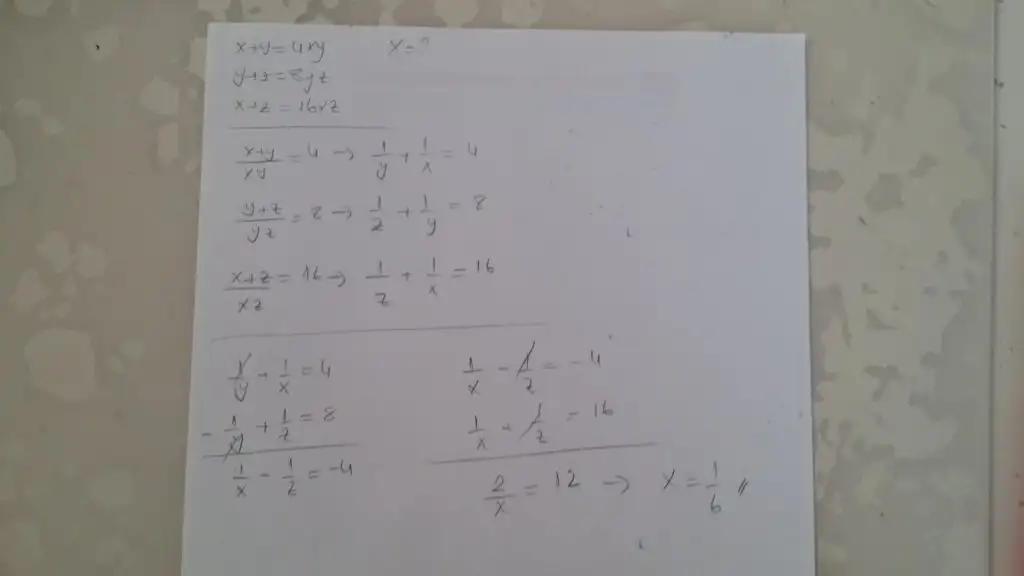 x+y=4xy x=?
y+z=8yz
x+z=16xz
x+y/xy = 4 → 1/y + 1/x = 4
y+z/yz = 8 → 1/z + 1/y = 8
x+z/xz = 16 → 1/z + 1/x = 16
1/y + 1/x = 4
- 1/y + 1/z = 8
1/x - 1/z = -4
1/x - 1/z = -4
1/x + 1/z = 16
2/x = 12 → x = 1/6 //